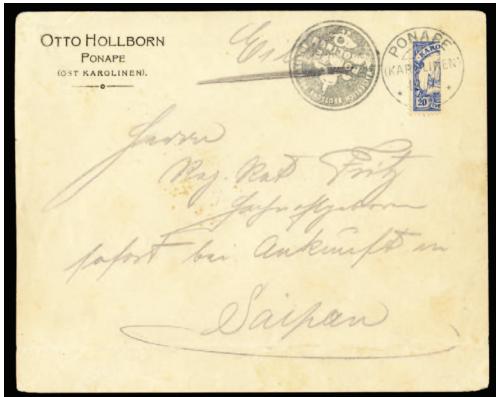 OTTO HOLLBORN
PONAPE
(OST KAROLINEN).
PONAPE
(KAROLINEN)
KARO
20
Herrn
Reg. Rat Fritz
Hochwohlgeboren
sofort bei Ankunft in
Saipan